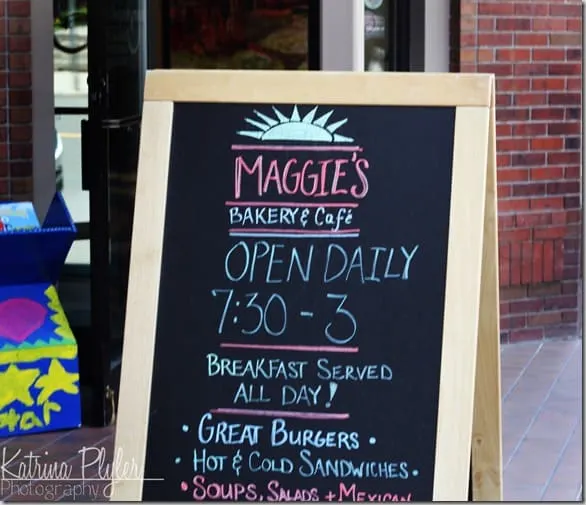 MAGGIE'S
BAKERY & Café
OPEN DAILY
7:30 - 3
BREAKFAST SERVED
ALL DAY!
• GREAT BURGERS •
• HOT & COLD SANDWICHES •
• SOUPS, SALADS + MEXICAN
star
Katrina Plyler
Photography